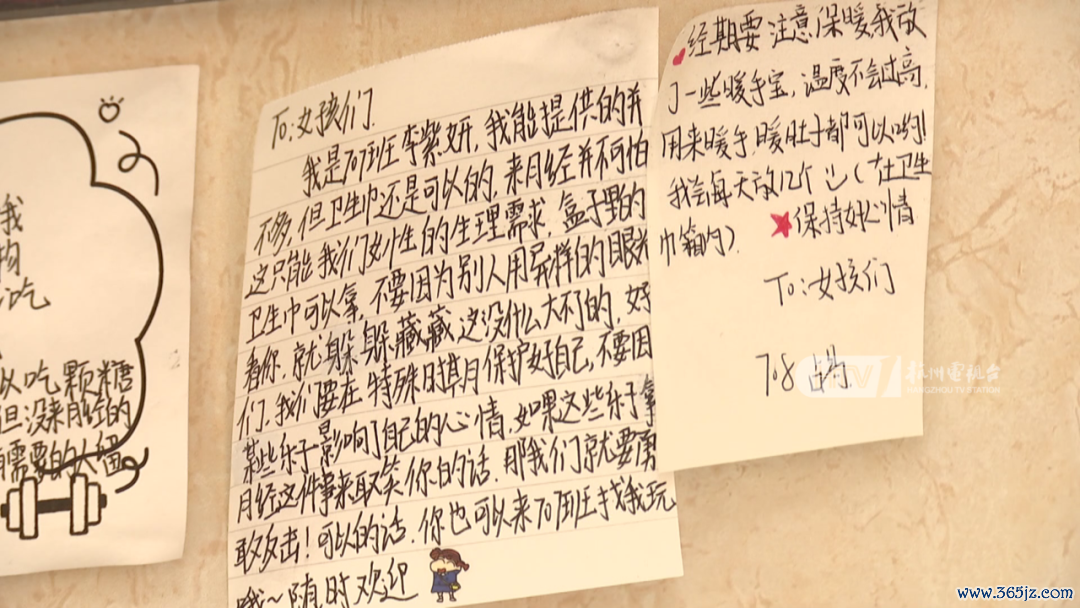 我
吃
以吃颗糖
但没来月经的
有需要的人留
To:女孩们.
我是707班王李紫妍,我能提供的并
不多,但卫生巾还是可以的,来月经并不可怕
这只能我们女生的生理需求,盒子里的
卫生巾可以拿,不要因为别人用异样的眼光
看你,就躲躲藏藏这没什么大不了的,好
们,我们要在特殊时期保护好自己,不要因
某些乐子影响了自己的心情,如果这些乐子拿
月经这件事来取笑你的话,那我们就要勇
敢反击!可以的话,你也可以来707班找我玩
哦~随时欢迎
经期要注意保暖,我放
了一些暖手宝,温度不会过高,
用来暖手,暖肚子都可以哟!
我会每天放12个(在卫生
巾箱内).
保持好心情
To:女孩们
708
杭州电视台
HANGZHOU TV STATION
www.365jz.com